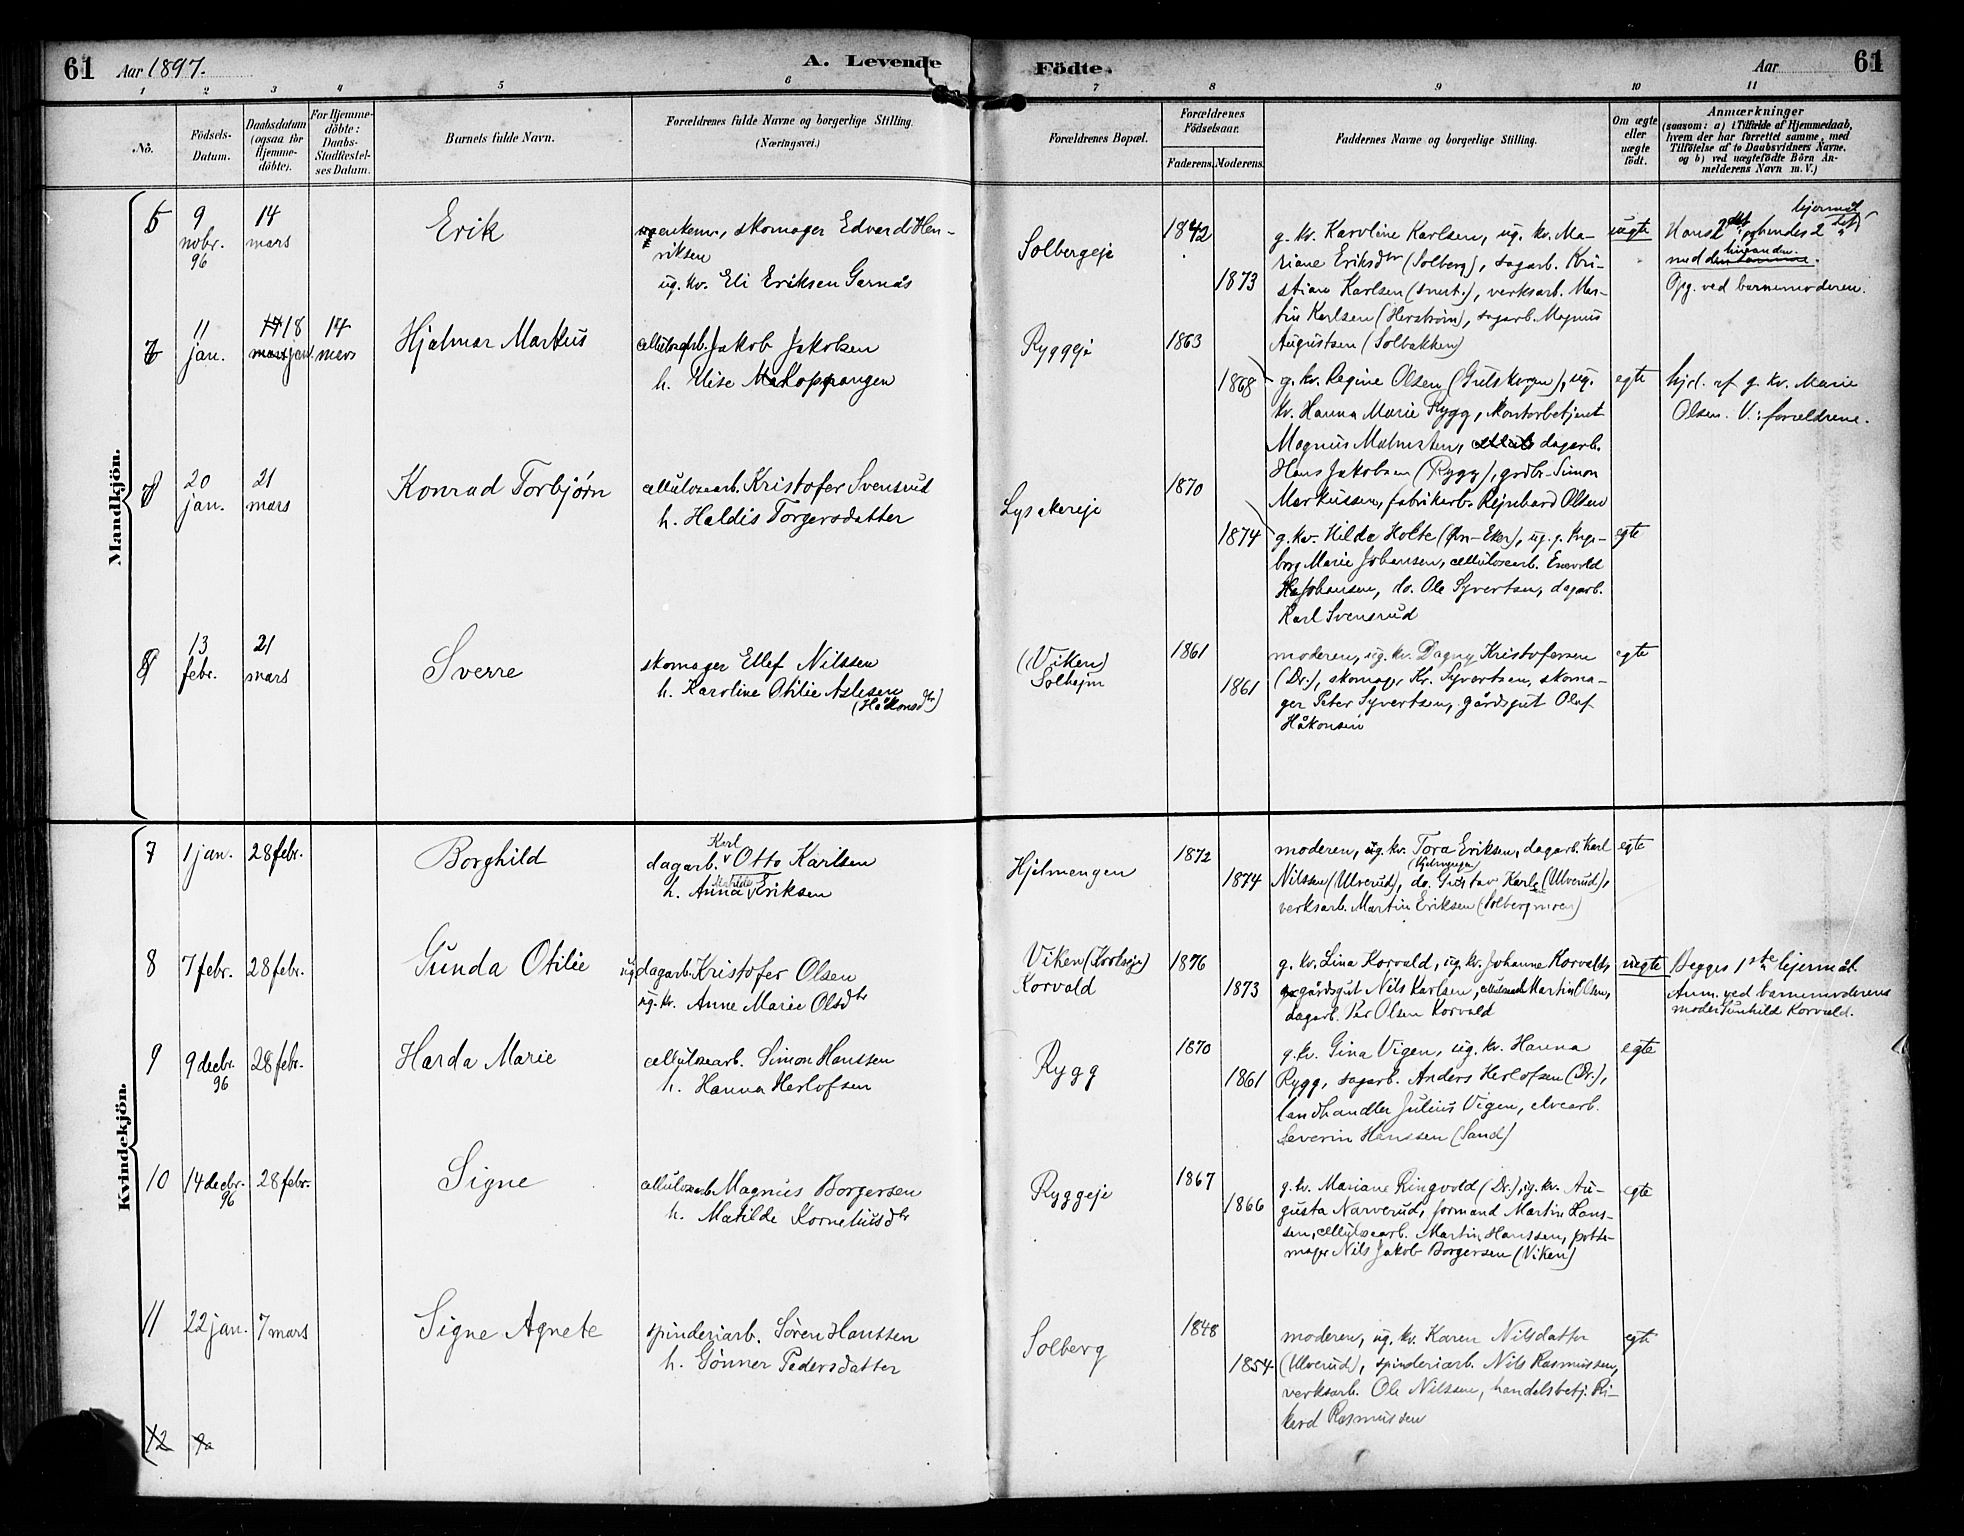 61 Aar 1897. A. Levende Födte. Aar 61
1 2 3 4 5 6 7 8 9 10 11
No.
Födsels-Datum.
Daabsdatum (ogsaa for Hjemme-döbte).
For Hjemme-döbte: Daabs-Stadfæstel-ses Datum.
Barnets fulde Navn.
Forældrenes fulde Navne og borgerlige Stilling. (Næringsvei.)
Forældrenes Bopæl.
Forældrenes Födselsaar.
Faderens. Moderens.
Faddernes Navne og borgerlige Stilling.
Om ægte eller uægte födt.
Anmærkninger
(saasom: a) i Tilfælde af Hjemmedaab, hvem der har forrettet samme, med Tilföielse af to Daabsvidners Navne, og b) ved uægtefödte Börn An-melderens Navn m. V.)
Mandkjön.
9 nobr. 96
14 mars
Erik
enkem., skomager Edvard Hen-
riksen
ug. kv. Eli Eriksen Garnås
Solbergeje
1842
1873
g. kv. Karoline Karlsen, ug. kv. Ma-
riane Eriksdtr (Solberg), sagarb. Kri-
stian Karlsen (), verksarb. Mar-
tin Karlsen (Herstrøm), sagarb. Magnus
Augustsen (Solbakken)
uegte
Hans 2det og hendes 2det lejermål
med hinanden.
Opg. ved barnemoderen.
11 jan.
18 jan.
14 mars
Hjalmar Markus
cellulosearb. Jakob Jakobsen
h. Elise Koppangen
Ryggeje
1863
1868
g. kv. Regine Olsen (Gulskogen), ug.
kv. Hanna Marie Rygg, kontorbetjent
Magnus Malmsten, dagarb.
Hans Jakobsen (Rygg), grdbr. Simon
Markussen, fabrikarb. Rejnhard Olsen
egte
hjd. af g. kv. Marie
Olsen. V.: forældrene.
20 jan.
21 mars
Konrad Torbjørn
cellulosearb. Kristofer Svensrud
h. Haldis Torgersdatter
Lysakereje
1870
1874
g. kv. Hilda Holte (Øv-Eker), ug. p. Inge-
borg Marie Johansen, cellulosearb. Enevold
Johansen, do. Ole Syvertsen, dagarb.
Karl Svensrud
egte
13 febr.
21 mars
Sverre
skomager Ellef Nilssen
h. Karoline Otilie Aslesen
(Håkonsdtr)
(Viken)
Solhejm
1861
1861
moderen, ug. kv. Dagny Kristofersen
(Dr.), skomager Kr. Syvertsen, skoma-
ger Peter Syvertsen, gårdsgut Olaf
Håkonsen
egte
Kvindekjön.
7
1 jan.
28 febr.
Borghild
dagarb. Karl Otto Karlsen
h. Anna Matilde Eriksen
Hjelmengen
1872
1874
moderen, ug. kv. Tora Eriksen, dagarb. Karl
Nilssen (Ulverud), do. Gustav Karlsen (Ulverud),
verksarb. Martin Eriksen (Solbergmoen)
egte
8
7 febr.
28 febr.
Gunda Otilie
ug. dagarb. Kristofer Olsen
ug. kv. Anne Marie Olsdtr
Viken (Korlseje)
Korvald
1876
1873
g. kv. Lina Korvald, ug. kv. Johanne Korvald,
gårdsgut Nils Karlsen, cellulosearb. Martin Olsen,
dagarb. Per Olsen Korvald
uegte
Begges 1ste lejermål.
Anm. ved barnemoderens
moder Gunhild Korvald.
9
9 decbr. 96
28 febr.
Harda Marie
cellulosearb. Simon Hanssen
h. Hanna Herlofsen
Rygg
1870
1861
g. kv. Gina Vigen, ug. kv. Hanna
Rygg, sagarb. Anders Herlofsen (Dr.),
landhandler Julius Vigen, elvearb.
Severin Hanssen (Sand)
egte
10
14 decbr. 96
28 febr.
Signe
cellulosearb. Magnus Borgersen
h. Matilde Korneliusdtr
Ryggeje
1867
1866
g. kv. Mariane Ringvold (Dr.), ug. kv. Au-
gusta Narverud, formand Martin Hans-
sen, cellulosearb. Martin Hanssen, potte-
mager Nils Jakob Borgersen (Viken)
egte
11
22 jan.
7 mars
Signe Agnete
spinderiarb. Søren Hanssen
h. Gønner Pedersdatter
Solberg
1848
1854
moderen, ug. kv. Karen Nilsdatter
(Ulverud), spinderiarb. Nils Rasmussen,
verksarb. Ole Nilssen, handelsbetj. Ri-
kard Rasmussen
egte
12